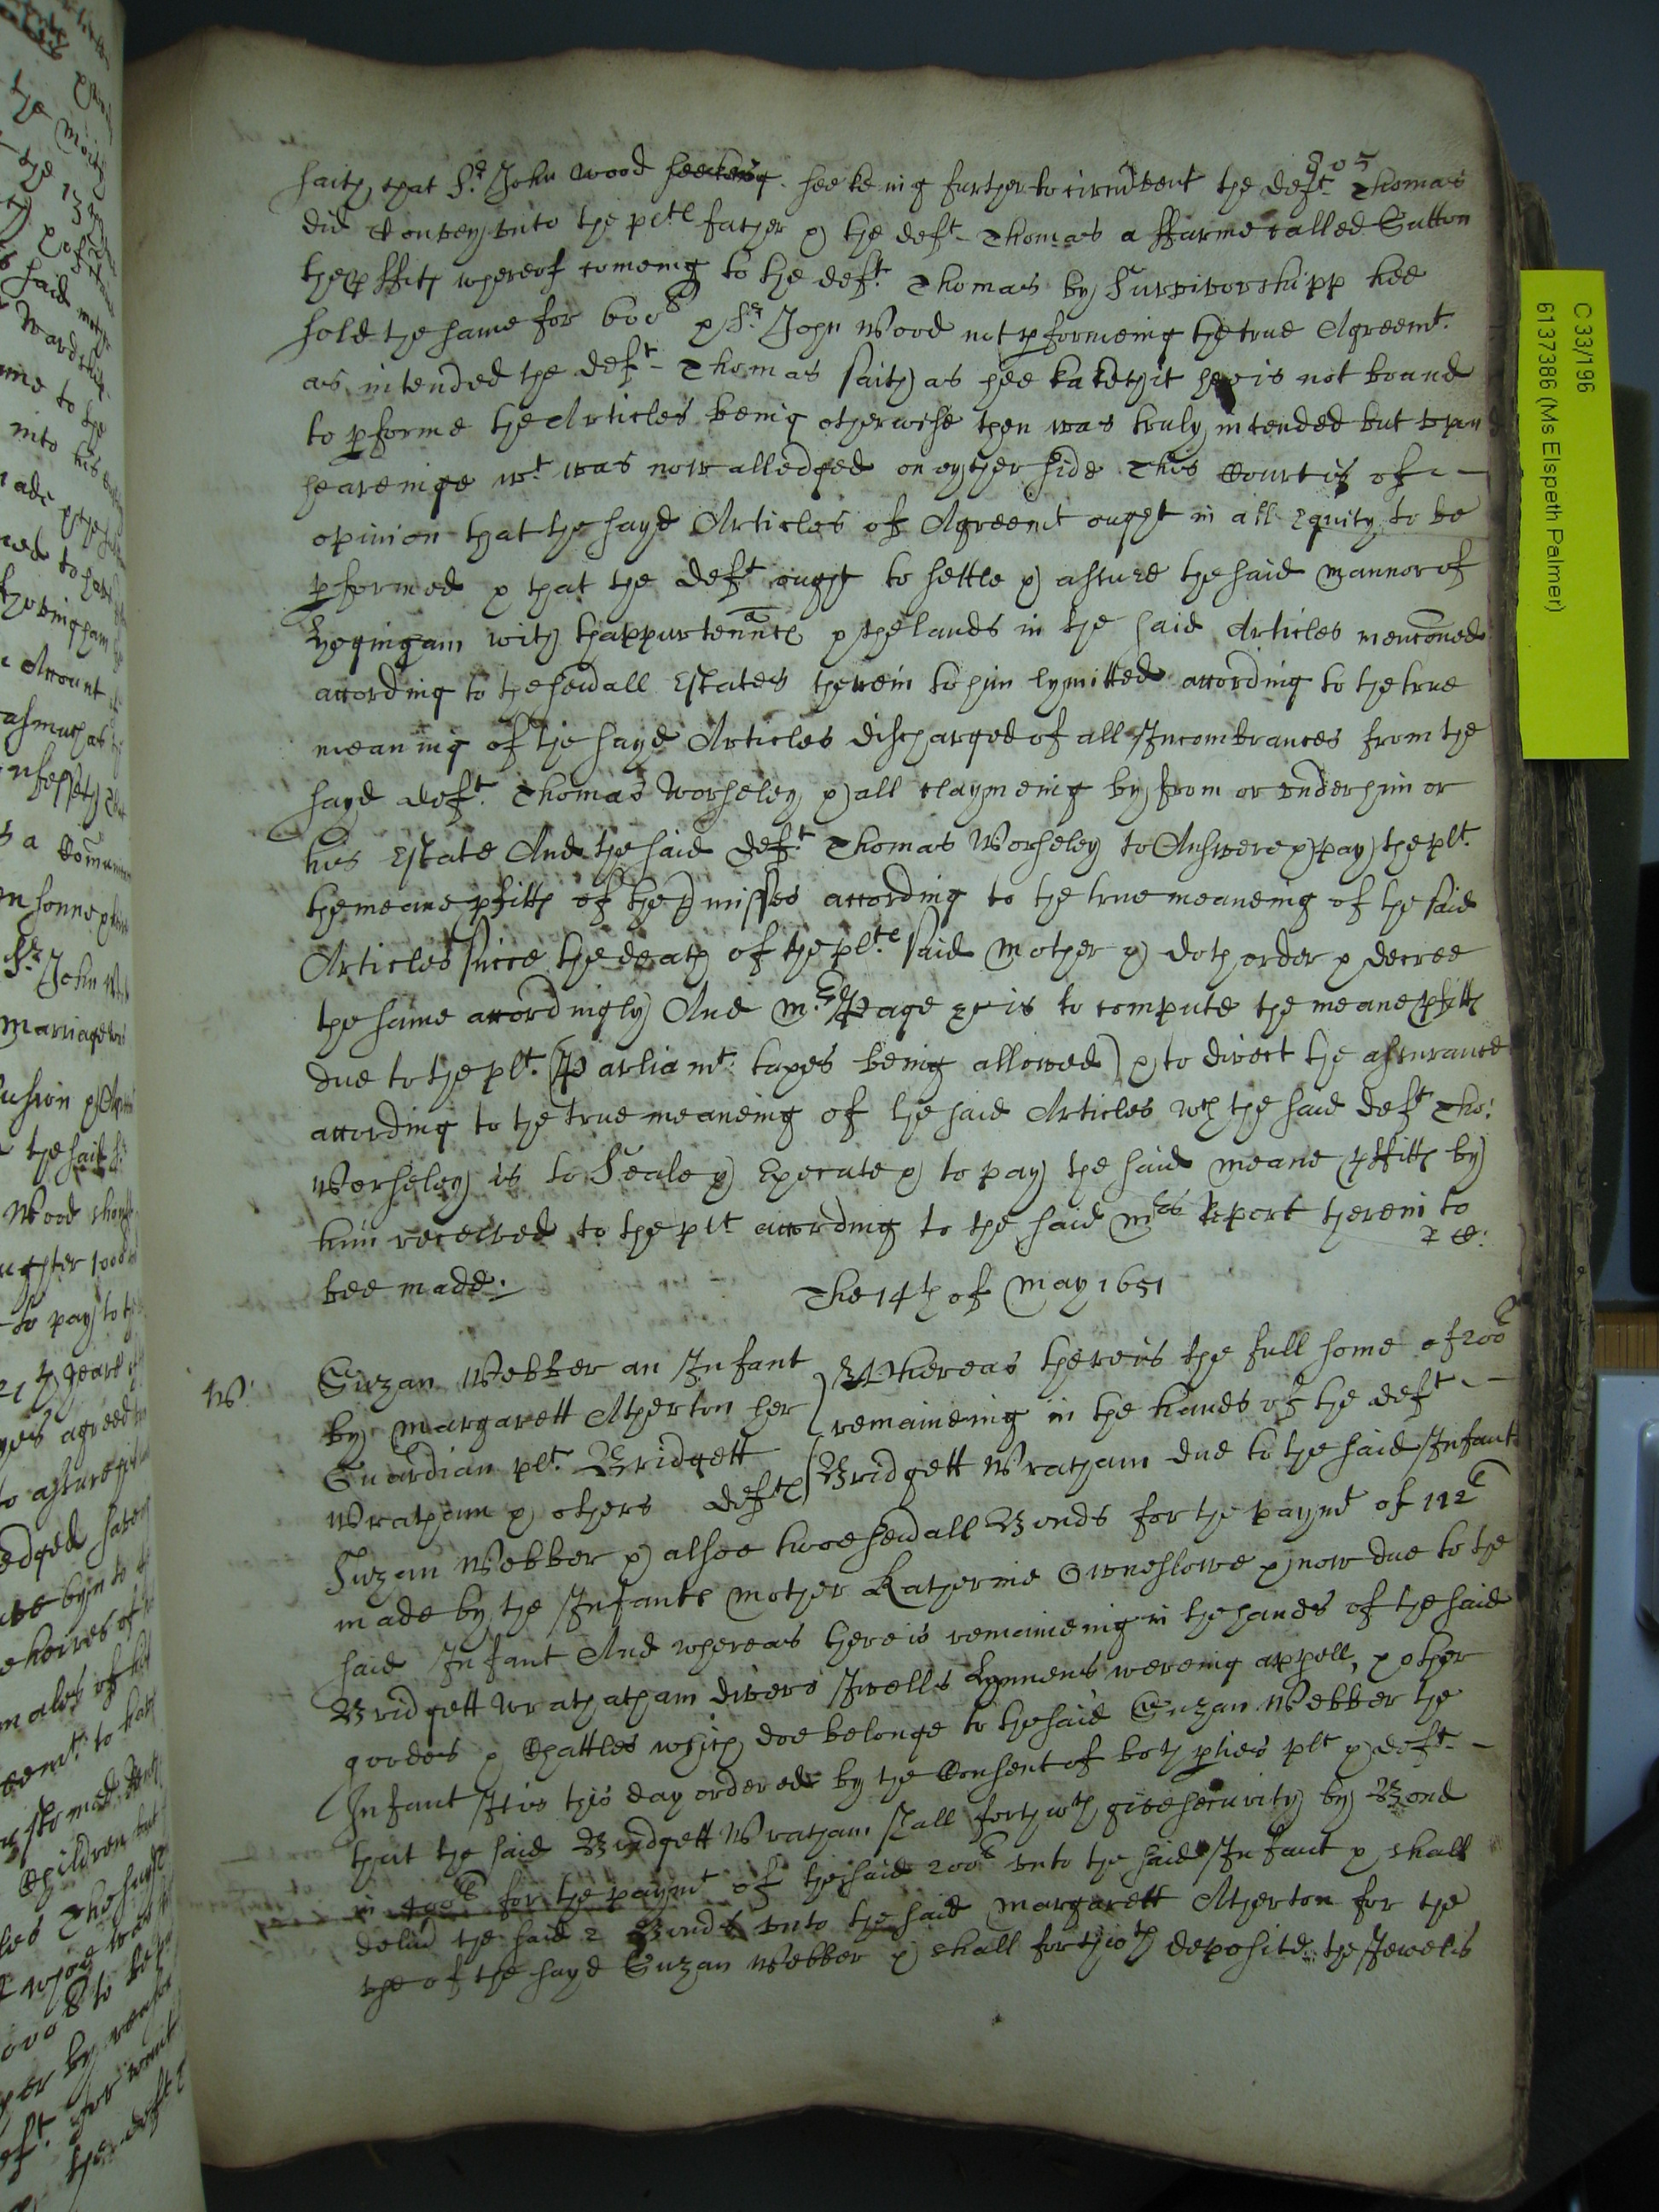 805
saith that Sr. John Wood seekeing seekeing further to circumvent the deft. Thomas
did Convey unto the plts father & the deft. Thomas a ffarme called Sutton
the pffitts whereof comeing to the deft. Thomas by Survivorshipp hee
sold the same for 600l & Sr. John Wood not pformeing the true Agreemt.
as intended the deft. Thomas saith as hee taketh it hee is not bound
to pforme the Articles being otherwise then was truly intended but upon
heareinge wt. was now alledged on eyther side This Court is of
opinion that the sayd Articles of Agreemt ought in all Equity to be
pformed & that the deft ought to settle & assure the said mannor of
with thappurtennces & the lands in the said Articles menconed
according to the sevall Estates therein to him lymitted according to the true
meaning of the sayd Articles discharged of all Incombrances from the
sayd deft. Thomas Worseley & all claymeing by from or under him or
his Estate And the said deft. Thomas Worseley to Answere & pay the plt.
the meane pfitts of the pmisses according to the true meaneing of the said
Articles since the death of the plts said mother & doth order & decree
the same accordingly And mr. Page is to compute the meane pfitts
due to the plt. (Parliamt. taxes being allowed) & to direct the assurance
according to the true meaneing of the said Articles wch the said deft Tho:
Worseley is to Seale & Execute & to pay the said meane pffitts by
him received to the plt according to the said mrs Report therein to
bee made.
The 14th of May 1651
W:
Suzan Webber an Infant
by Margarett Atherton her
Guardian plt. Bridgett
Wratham & others defts
Whereas there is the full some of 200l
remaineing in the hands of the deft
Bridgett Wratham due to the said Infant
Suzan Webber & alsoe twoe sevall Bonds for the paymt of 112l
made by the Infants mother Katherine Owneslowe & now due to the
said Infant And whereas there is remaineing in the hands of the said
Bridgett Wrathatham divers Jwells Lynnens wereing appell, & other
goodes & Chattles which doe belonge to the said Suzan Webber the
Infant It is this day ordered by the Consent of both pties plt & deft.
that the said Bridgett Wratham shall forthwth give security by Bond
in 400l for the paymt of the said 200l unto the said Infant & shall
deliv the said 2 Bonds unto the said Margarett Atherton for the
use of the sayd Suzan Webber & shall forthwth deposite the Jewells
C 33/196
6137386 (Ms Elspeth Palmer)